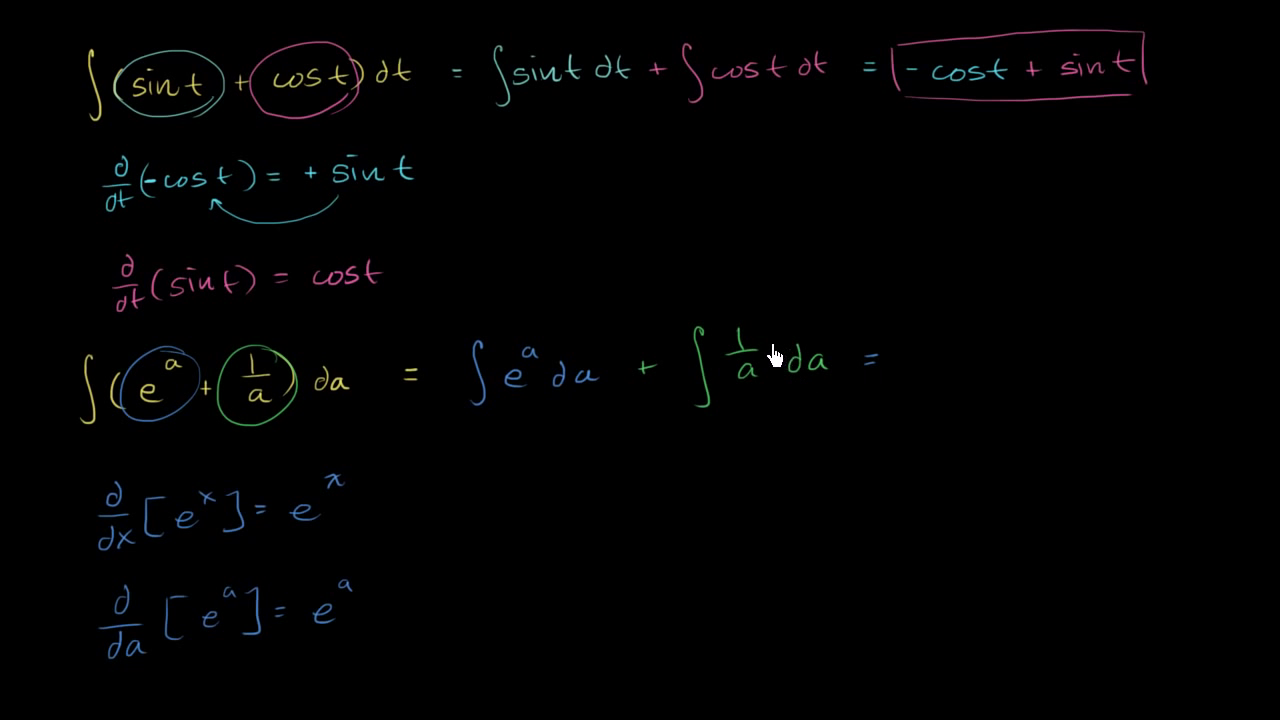 ∫(sin t + cos t) dt = ∫sin t dt + ∫cos t dt = -cos t + sin t
d/dt (-cos t) = + sin t
d/dt (sin t) = cos t
∫(e^a + 1/a) da = ∫e^a da + ∫ 1/a da =
d/dx [e^x] = e^x
d/da [e^a] = e^a